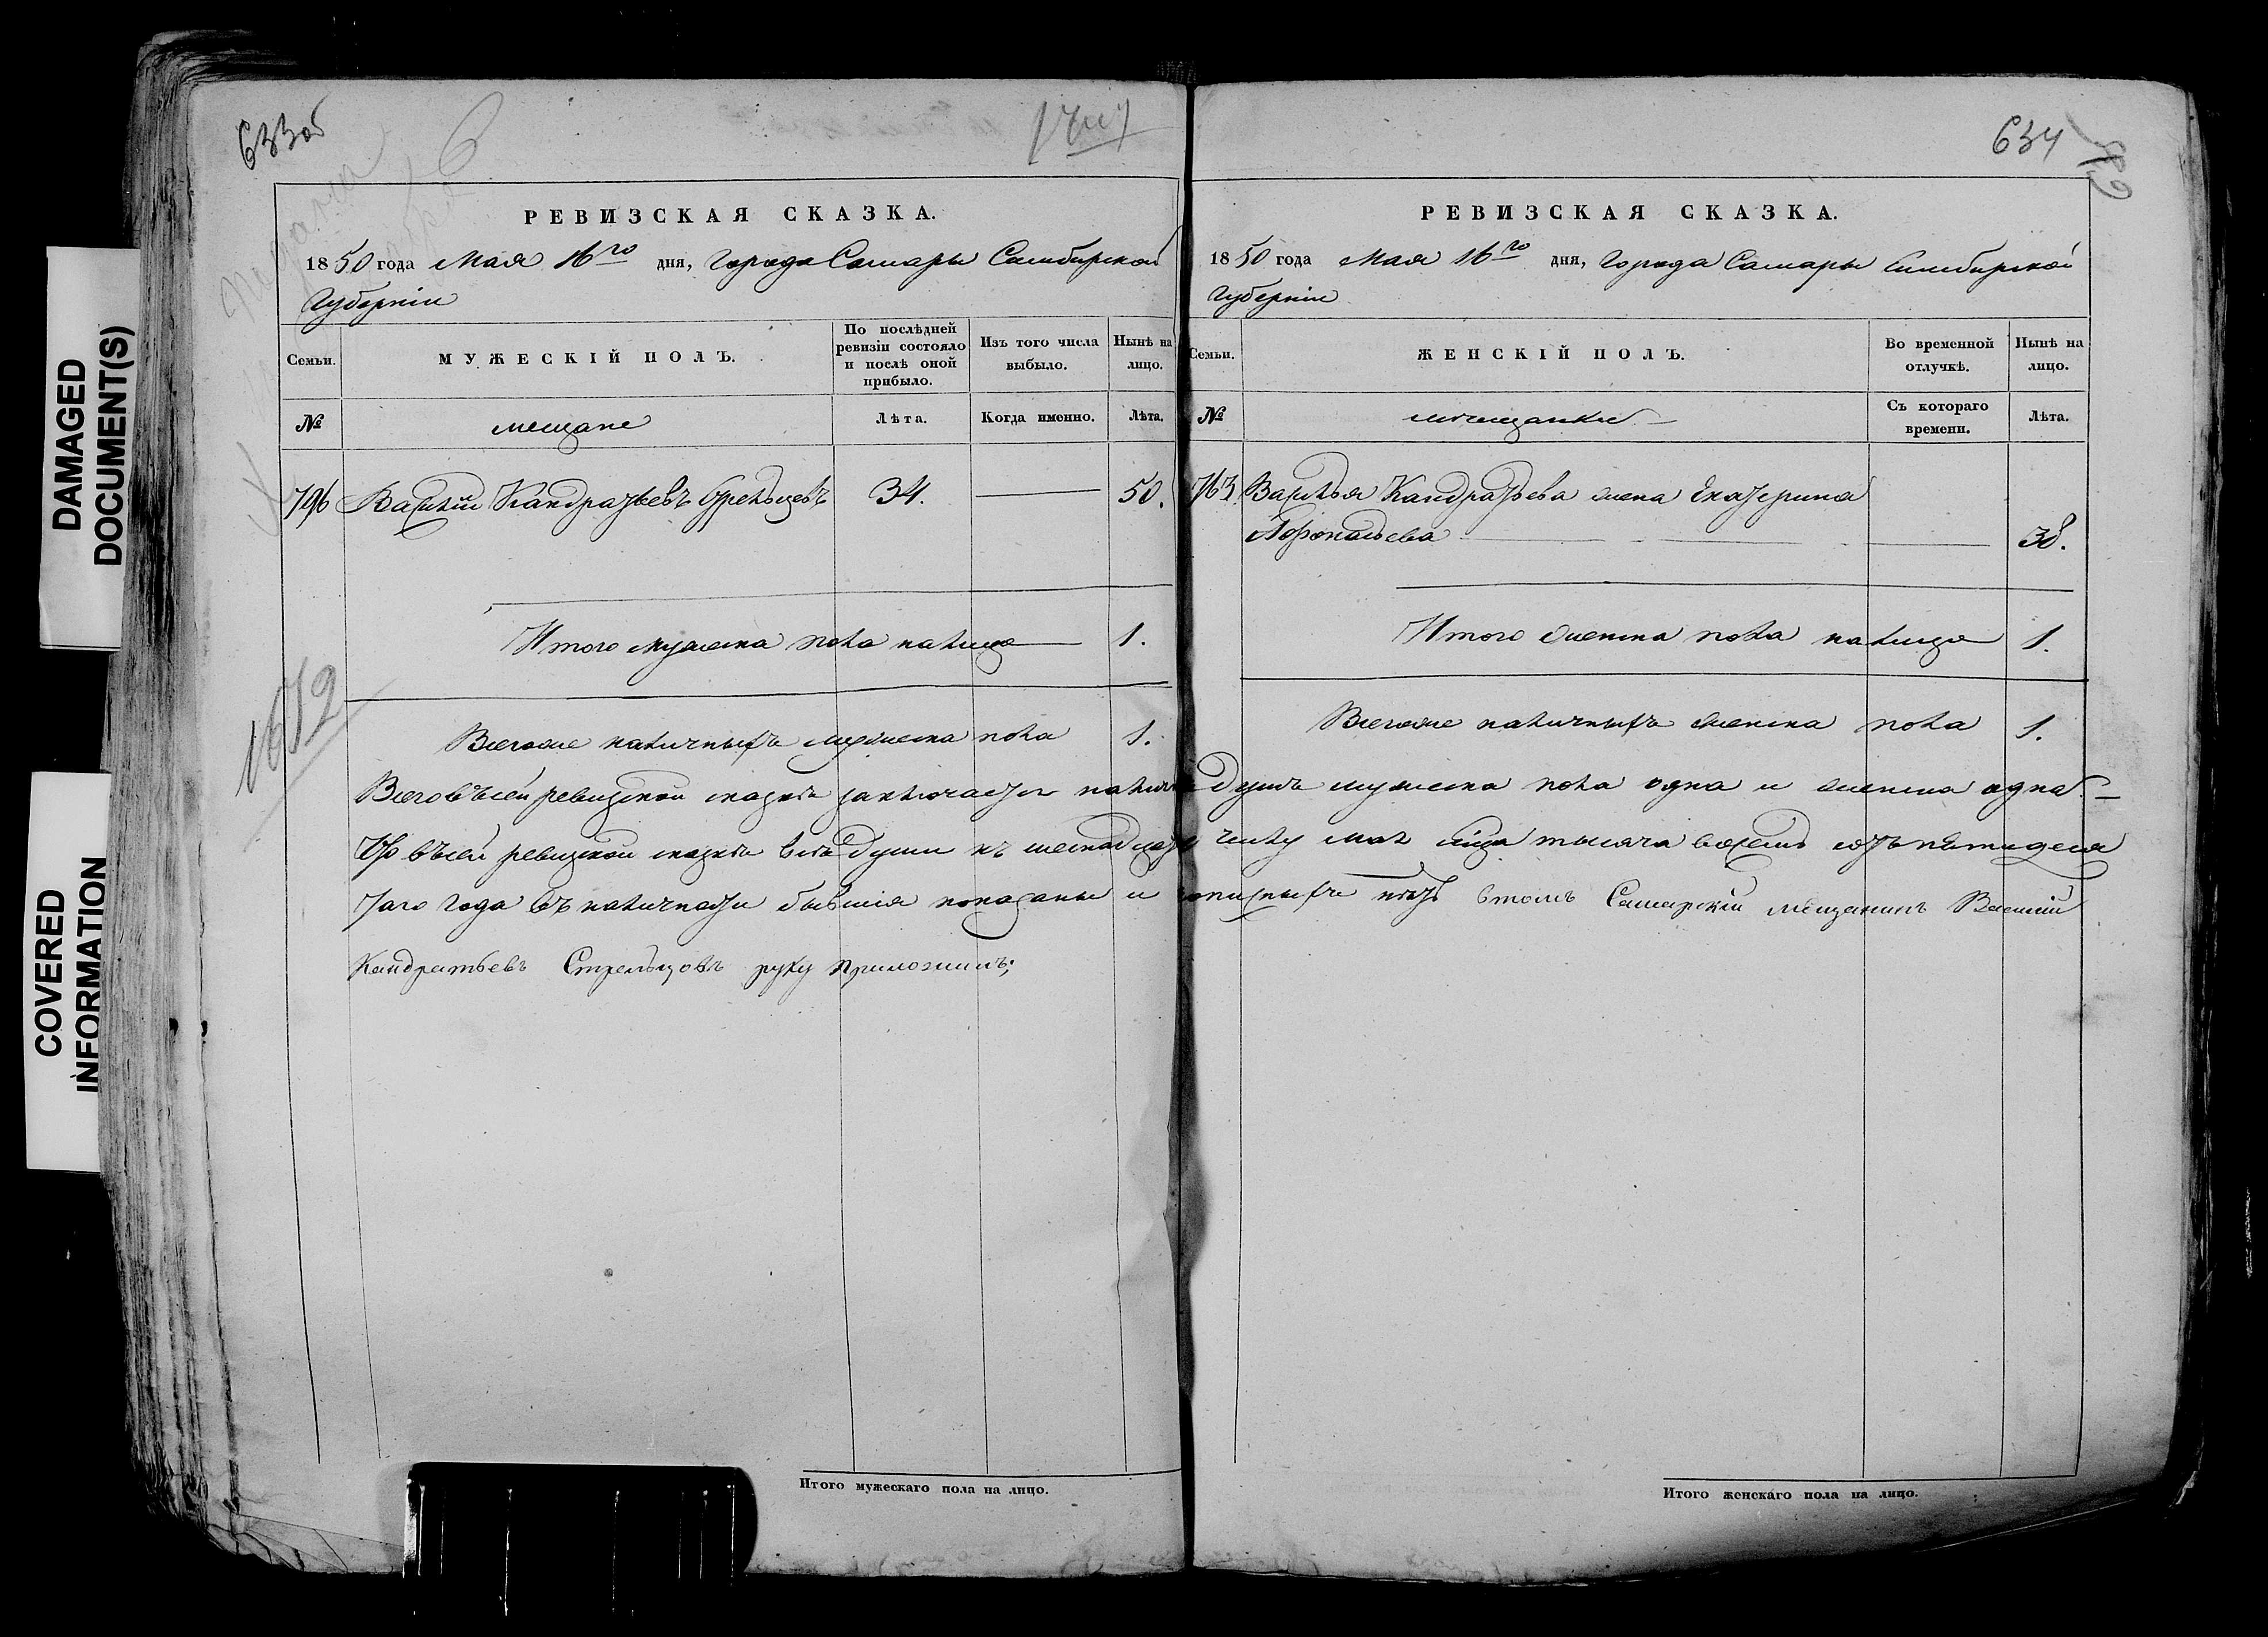 633об
634
82
1612
DAMAGED
DOCUMENT(S)
COVERED
INFORMATION
РЕВИЗСКАЯ СКАЗКА.
1850 года Мая 16го дня, Города Самары Симбирской
Губернiи
Семьи. МУЖЕСКIЙ ПОЛЪ. По послѣдней ревизiи состояло и послѣ оной прибыло. Изъ того числа выбыло. Нынѣ на лицо.
№ мещане Лѣта. Когда именно. Лѣта.
Василiй Кандратьевъ Стрельцовъ 34. 50.
Итого мужеска пола налицо 1.
Всегоже наличныхъ мужеска пола 1.
РЕВИЗСКАЯ СКАЗКА.
1850 года Мая 16го дня, Города Самары Симбирской
Губернiи
Семьи. ЖЕНСКIЙ ПОЛЪ. Во временной отлучкѣ. Нынѣ на лицо.
№ мѣщанки Съ котораго времени. Лѣта.
763 Василья Кандратьева жена Екатерина
Афонасьева 38.
Итого женска пола налицо 1.
Всегоже наличныхъ женска пола 1.
Всего въ сей ревизской сказкѣ заключается налично душъ мужеска пола одна и женска одна
въ сей ревизской сказкѣ всѣ души къ шестнадцатому числу мая мѣсяца тысяча восемь сотъ пятидеся
таго года въ наличности бывшiя показаны и прописныхъ нѣтъ втомъ Самарскiй мещанинъ Василiй
Кандратьевъ Стрельцовъ руку приложилъ;
Итого мужескаго пола на лицо.
Итого женскаго пола на лицо.